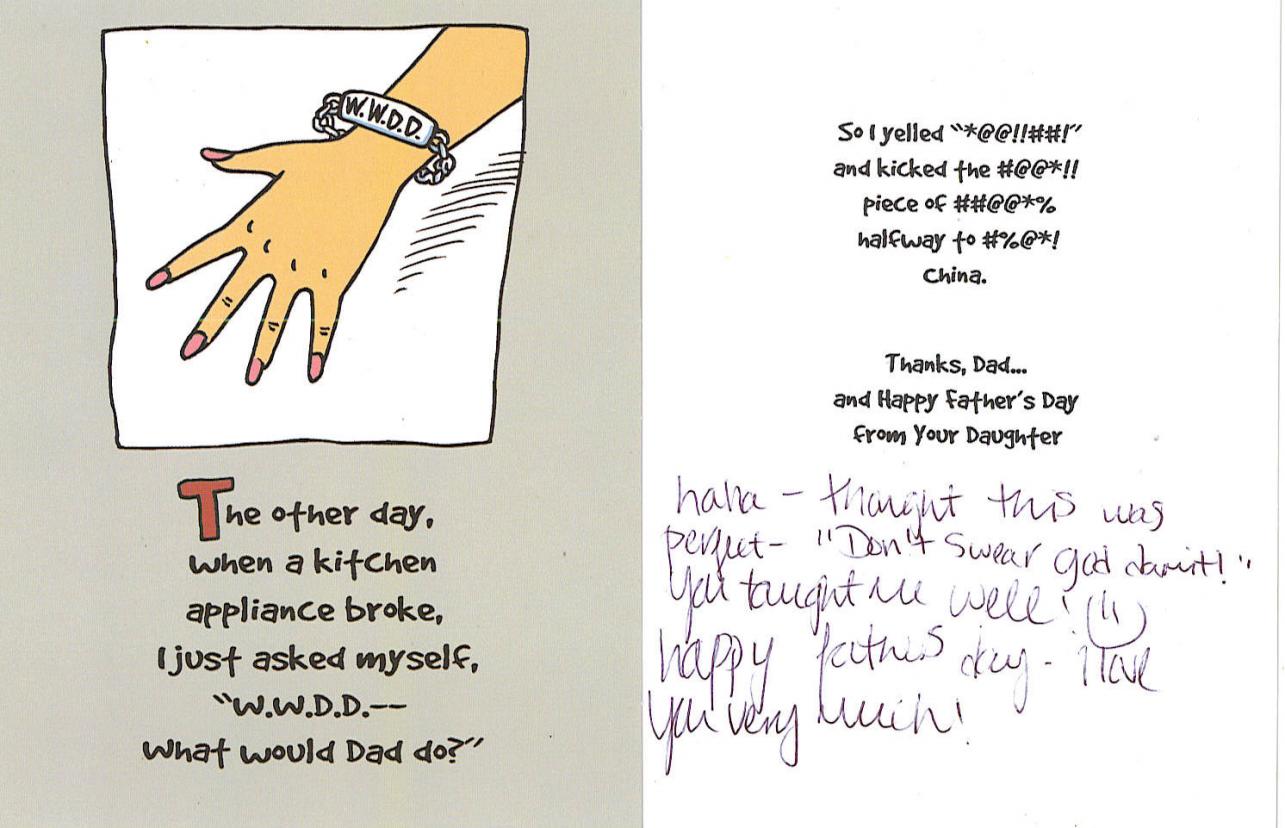 W.W.D.D.
The other day,
when a kitchen
appliance broke,
I just asked myself,
"W.W.D.D.--
What would Dad do?"
So I yelled "*@@!!##!"
and kicked the #@@*!!
piece of ##@@*%
halfway to #%@*!
China.
Thanks, Dad...
and Happy Father's Day
from Your Daughter
haha - thought this was
perfect- "Don't swear god damit!"
You taught me well! (")
happy fathers day - i love
you very much!